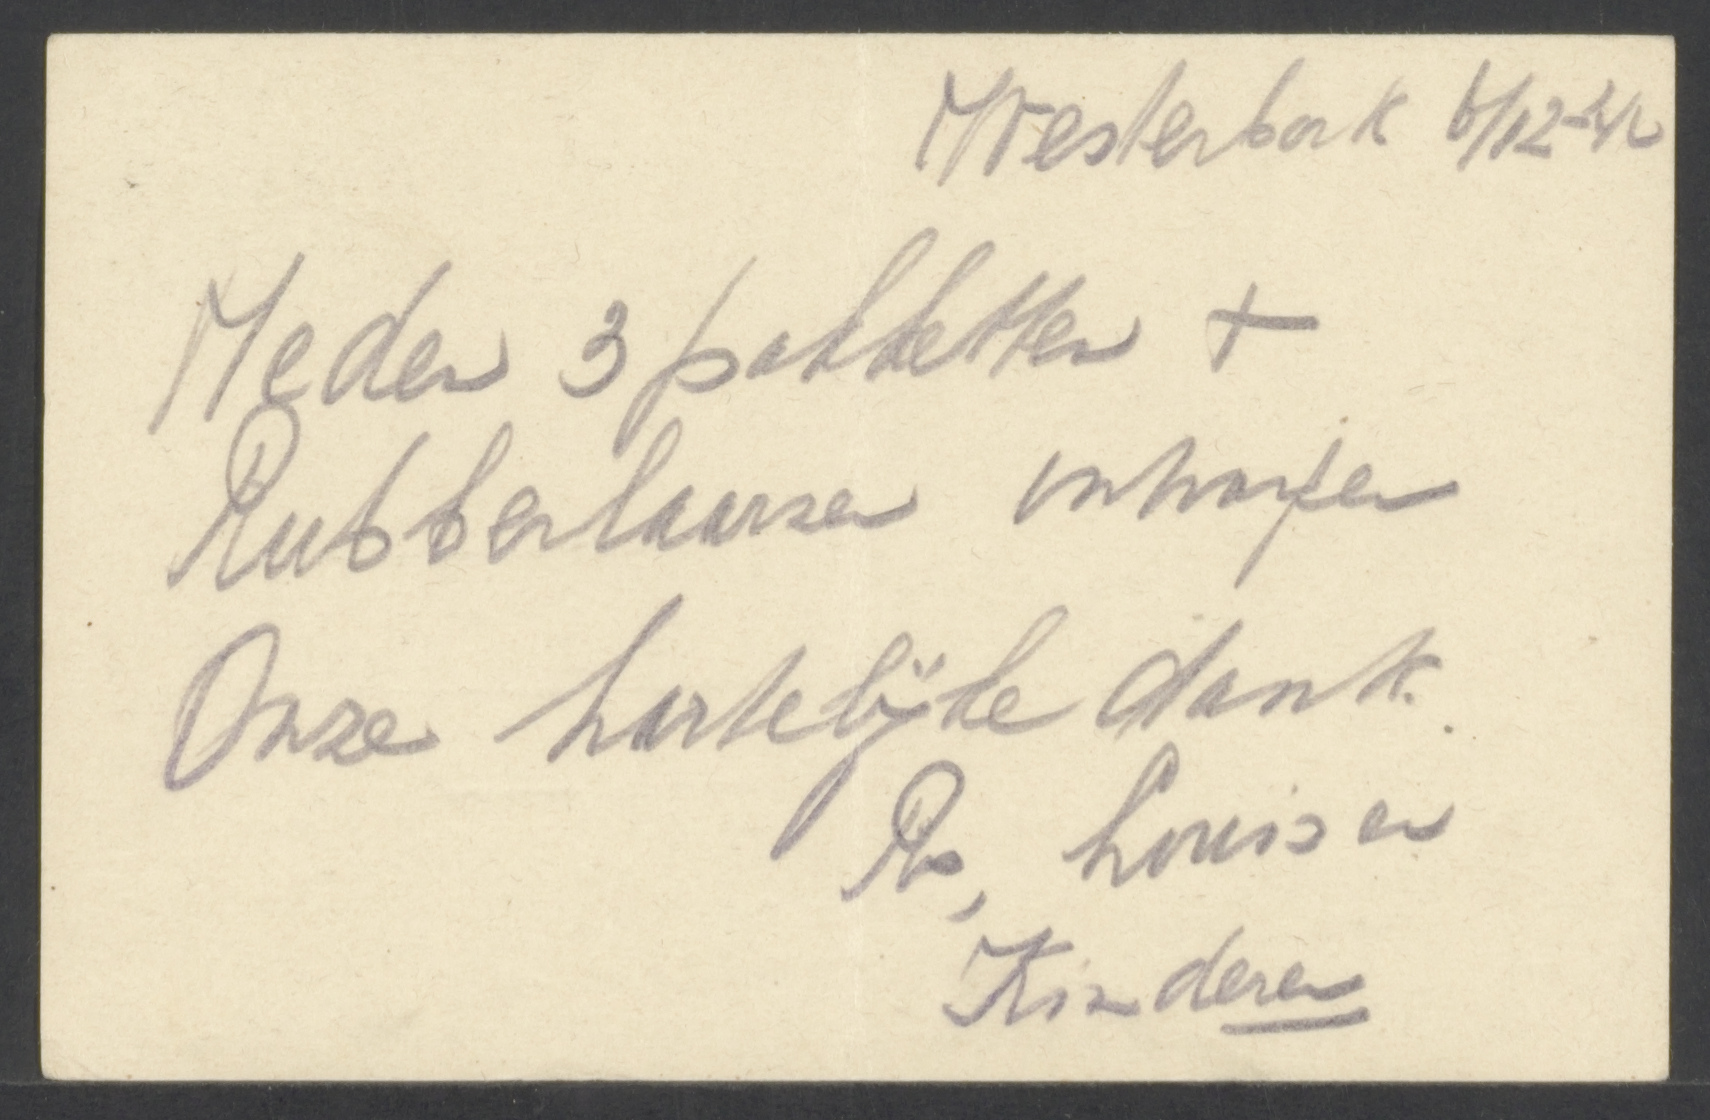 Westerbork 6/12-42
Heden 3 pakketten +
Rubberlaarzen ontvangen
Onze hartelijke dank.
Louis en
Kinderen